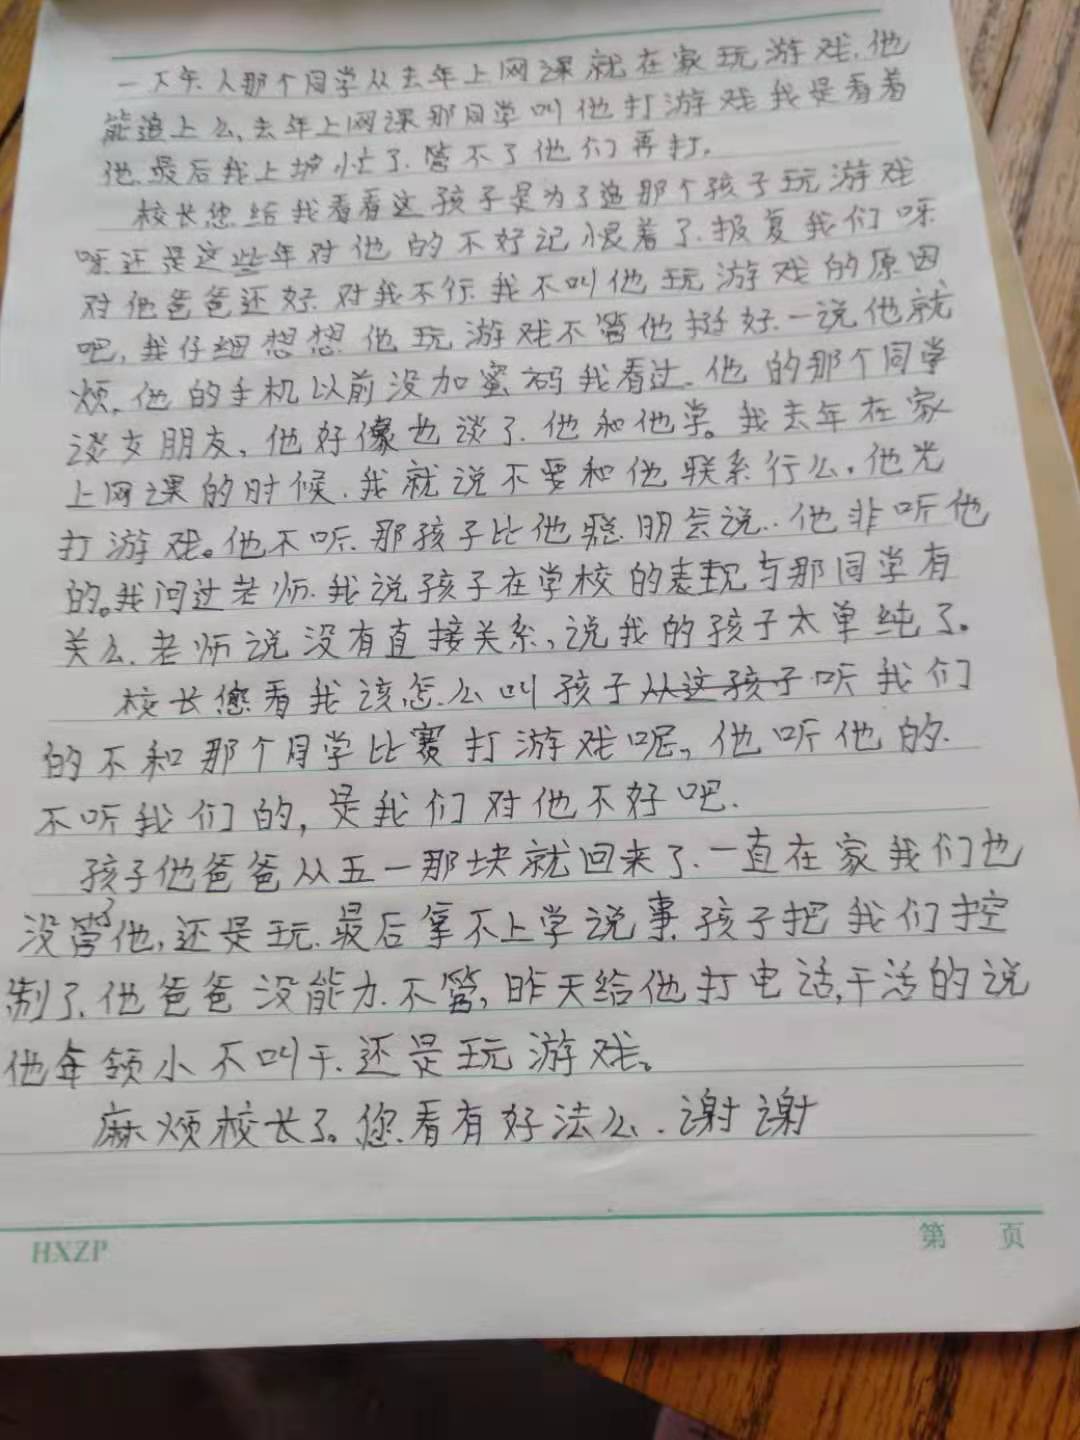 一下午.人那个同学从去年上网课就在家玩游戏.他
能追上么,去年上网课那同学叫他打游戏我是看着
他.最后我上坡忙了.管不了他们再打.
校长您给我看看这孩子是为了追那个孩子玩游戏
呀还是这些年对他的不好记恨着了.报复我们呀
对他爸爸还好.对我不行.我不叫他玩游戏的原因
吧,我仔细想想他玩游戏不管他挺好.一说他就
烦.他的手机以前没加蜜码我看过.他的那个同学
谈女朋友,他好像也谈了.他和他学。我去年在家
上网课的时候.我就说不要和他联系行么.他光
打游戏。他不听.那孩子比他聪明会说..他非听他
的。我问过老师.我说孩子在学校的表现与那同学有
关么.老师说没有直接关系,说我的孩子太单纯了。
校长您看我该怎么叫孩子从这孩子听我们
的不和那个同学比赛打游戏呢,他听他的.
不听我们的,是我们对他不好吧.
孩子他爸爸从五一那块就回来了.一直在家我们也
没管他,还是玩.最后拿不上学说事.孩子把我们控
制了.他爸爸没能力.不管,昨天给他打电话,干活的说
他年领小不叫干.还是玩游戏。
麻烦校长了。您看有好法么.谢谢
HXZP
第 页